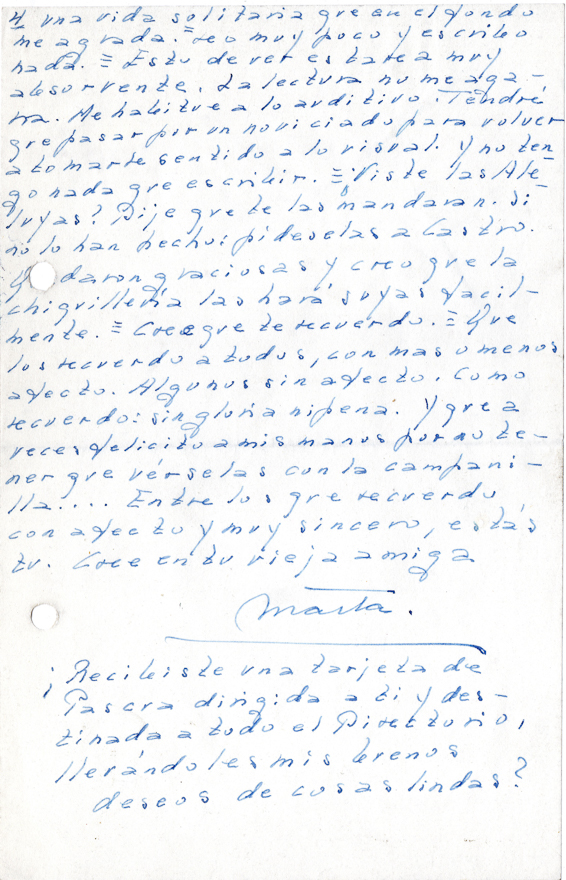 4 una vida solitaria que en el fondo
me agrada. = Leo muy poco y escribo
nada. = Esto de ver es tarea muy
absorvente. La lectura no me aga-
rra. Me habitué a lo auditivo. Tendré
que pasar por un noviciado para volver
a tomarle sentido a lo visual. Y no ten-
go nada que escribir. = Viste las Ale-
luyas? Dije que te las mandaran. Si
no lo han hecho: pideselas a Castro.
Quedaron graciosas y creo que la
chiquillería las hará suyas facil-
mente. = Cree que te recuerdo. = Que
los recuerdo a todos, con mas o menos
afecto. Algunos sin afecto. Como
recuerdo: sin gloria ni pena. Y que a
veces felicito a mis manos por no te-
ner que vérselas con la campani-
lla.... Entre los que recuerdo
con afecto y muy sincero, estás
tu. Cree en tu vieja amiga
Marta.
¡Recibiste una tarjeta de
Pascua dirigida a ti y des-
tinada a todo el Directorio,
llevándoles mis buenos
deseos de cosas lindas?